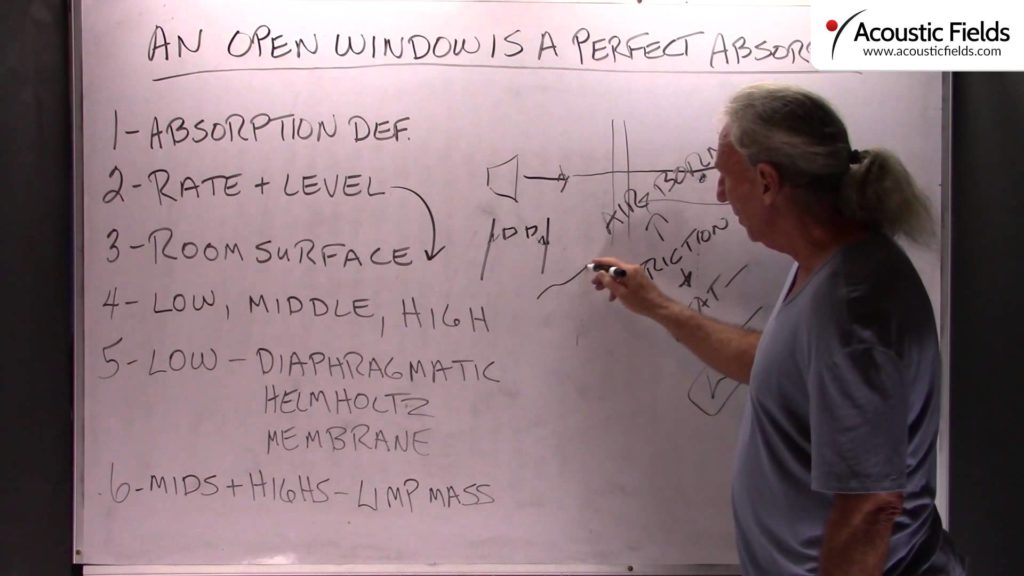 Acoustic Fields
www.acousticfields.com
AN OPEN WINDOW IS A PERFECT
1-ABSORPTION DEF.
2-RATE + LEVEL
3-ROOM SURFACE
4-LOW, MIDDLE, HIGH
5-LOW-DIAPHRAGMATIC
HELMHOLTZ
MEMBRANE
6-MIDS+HIGHS-LIMP MASS
D D
AIR